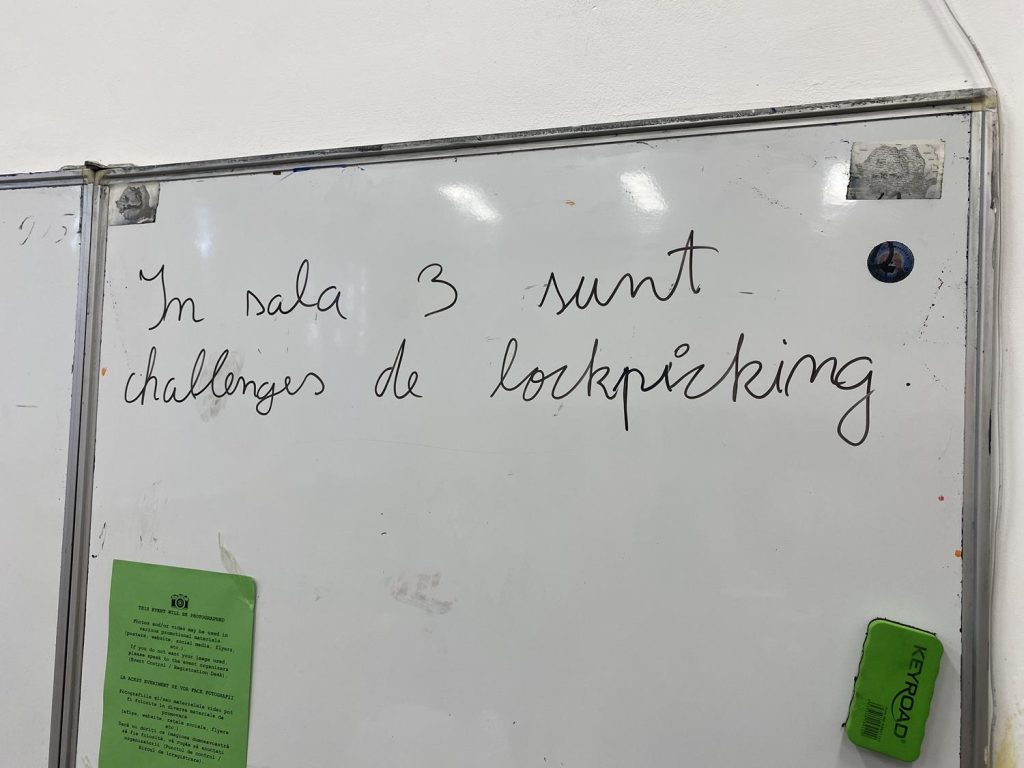 In sala 3 sunt
challenges de lockpicking.
THIS EVENT WILL BE PHOTOGRAPHED
Photos and/or video may be used in
various promotional materials
(posters, website, social media, flyers,
etc.)
If you do not want your image used,
please speak to the event organisers
(Event Control / Registration Desk).
LA ACEST EVENIMENT SE VOR FACE FOTOGRAFII
Fotografiile și/sau materialele video pot
fi folosite în diverse materiale de
promovare
(afișe, website, rețele sociale, flyere
etc.)
Dacă nu doriți ca imaginea dumneavoastră
să fie folosită, vă rugăm să anunțați
organizatorii (Punctul de control /
Biroul de înregistrare).
KEYROAD